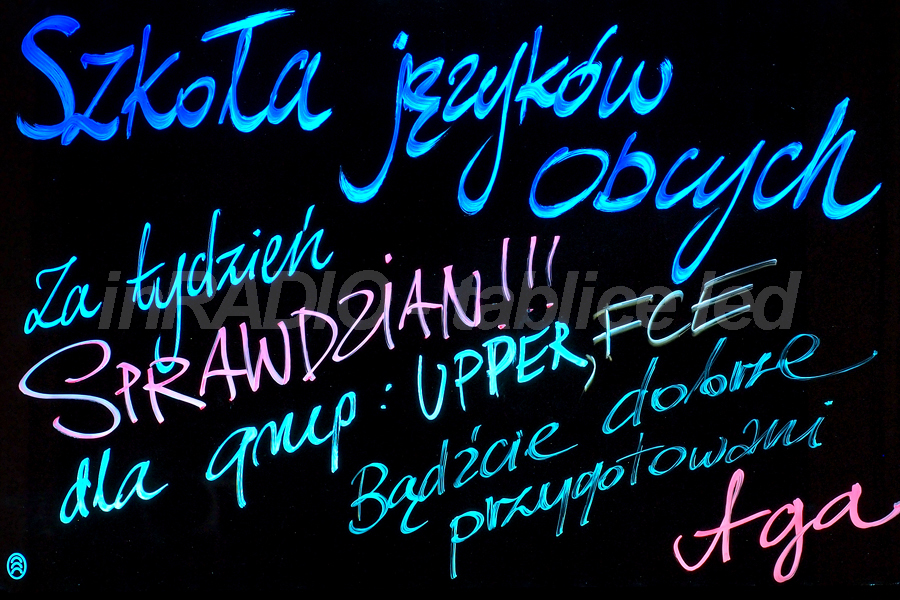 Szkoła języków
obcych
Za tydzień
inRADIO tablice led
SPRAWDZIAN!!!
dla grup: UPPER, FCE
Bądźcie dobrze
przygotowani
Aga